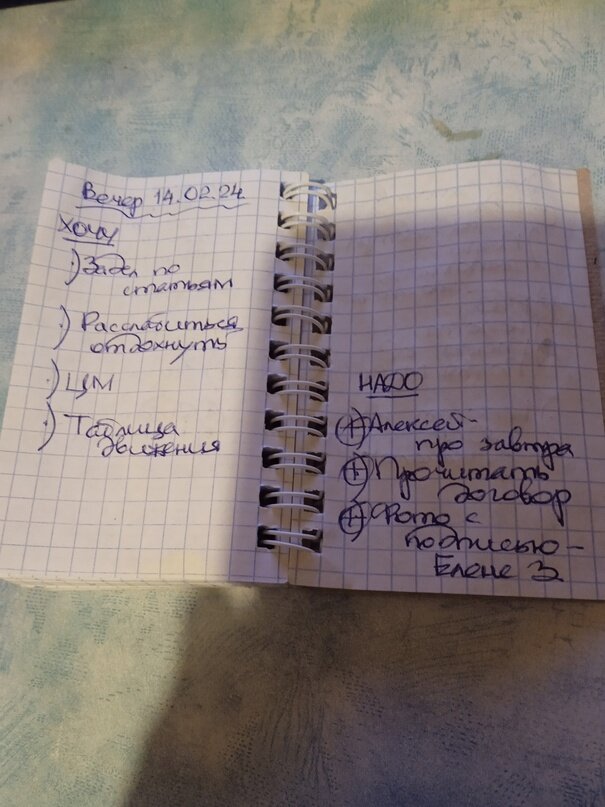 Вечер 14.02.24
Хочу
·) Задел по
статьям
·) Расслабиться
отдохнуть
·) ЦМ
·) Таблица
движения
НАДО
+ Алексей -
про завтра
+ Прочитать
договор
+ Фото с
подписью -
Елене З